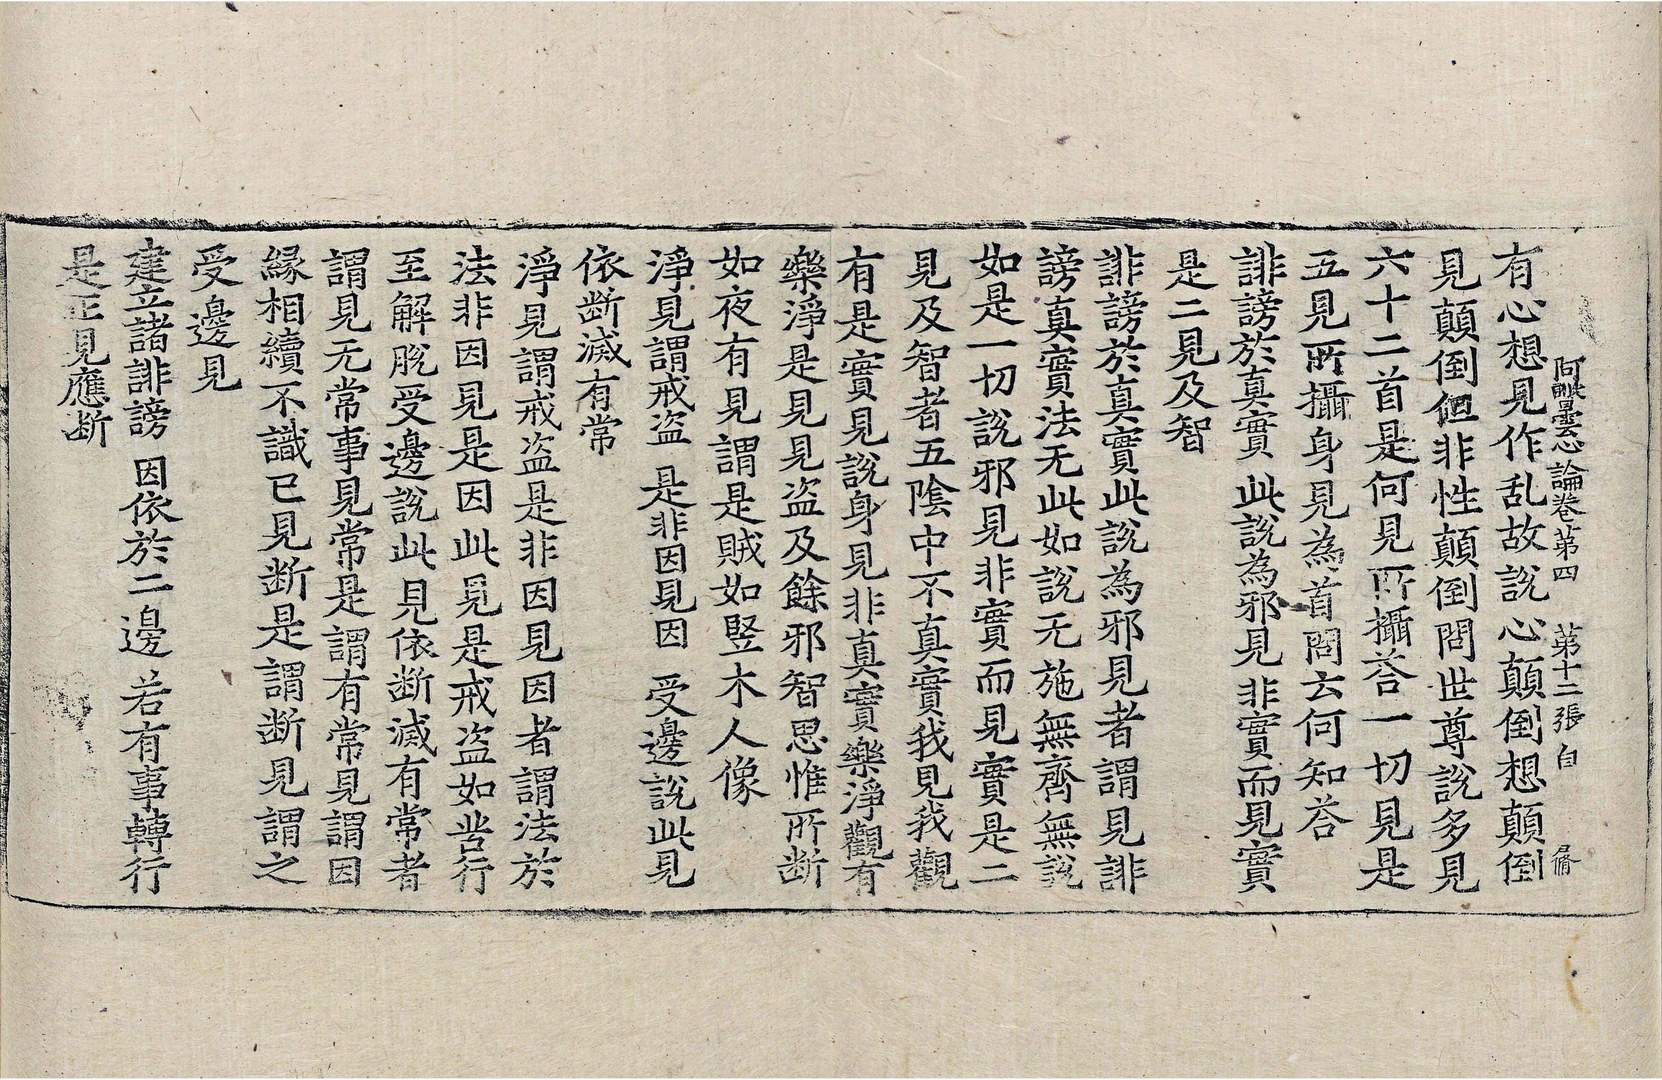 阿毗曇心論卷第四 第十二張 自
有心想見作乱故說心顛倒想顛倒
見顛倒但非性顛倒問世尊說多見
六十二首是何見所攝荅一切見是
五見所攝身見為首問云何知荅
誹謗於真實 此說為邪見 非實而見實
是二見及智
誹謗於真實此說為邪見者謂見誹
謗真實法无此如說无施無齊無說
如是一切說邪見非實而見實是二
見及智者五陰中不真實我見我觀
有是實見說身見非真實樂淨觀有
樂淨是見見盗及餘邪智思惟所断
如夜有見謂是賊如竪木人像
淨見謂戒盗 是非因見因 受邊說此見
依断滅有常
淨見謂戒盗是非因見因者謂法於
法非因見是因此見是戒盗如苦行
至解脫受邊說此見依断滅有常者
謂見无常事見常是謂有常見謂因
緣相續不識已見断是謂断見謂之
受邊見
建立諸誹謗 因依於二邊 若有事轉行
是正見應断